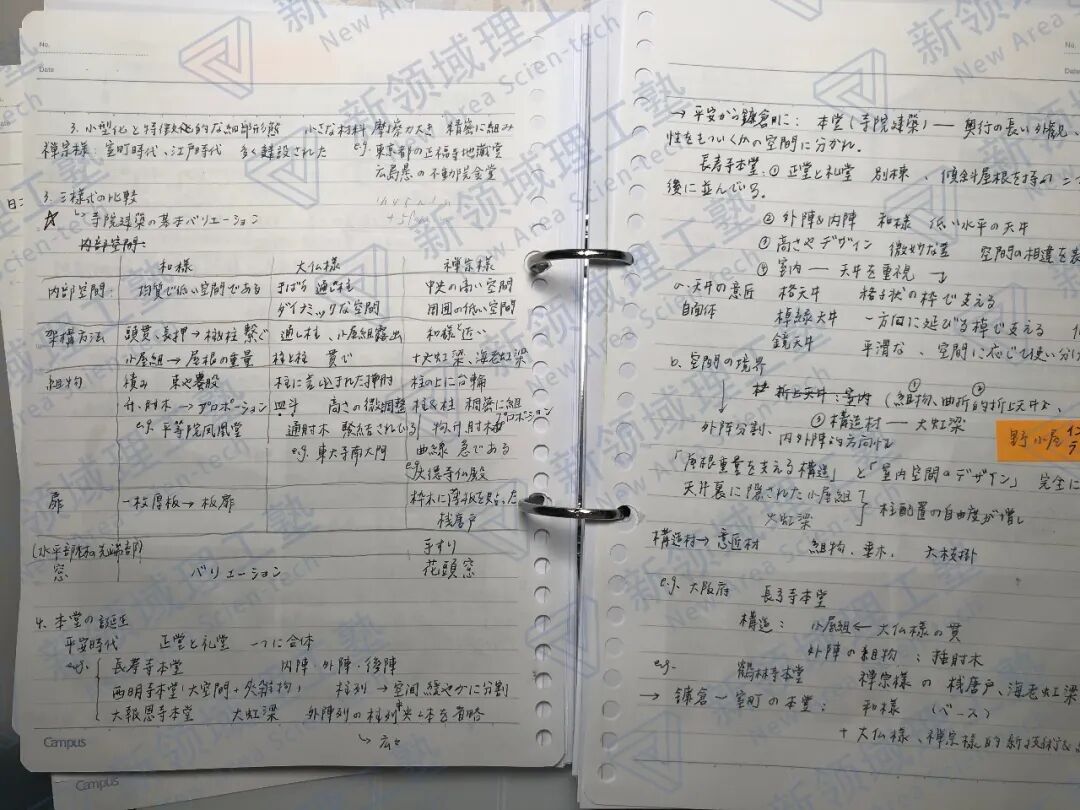 No.
Date
3. 小型化と特徴化的な細部形態 小さな材料 精密に組み
禅宗様: 室町時代、江戸時代 多く建設された e.g. 東京都の正福寺地蔵堂
広島県の不動院金堂
3. 三様式の比較
☆ 寺院建築の基本バリエーション
内部空間:
和様 大仏様 禅宗様
内部空間: 均質で低い空間である まばら 通し柱 中央の高い空間
ダイナミックな空間 周囲の低い空間
架構方法 頭貫、長押→柱と柱繋ぐ 通し柱、小屋組露出 和様と近い
小屋組→屋根の重量 柱と柱 貫で +大虹梁、海老虹梁
組物 積み 束や蟇股 柱に差し込まれた挿肘 柱の上に台輪
斗、肘木→プロポーション 皿斗 高さの微調整 柱&柱 稠密に組
e.g. 平等院鳳凰堂 通肘木 緊結されている 物、斗、肘木 プロポーション
e.g. 東大寺南大門 曲線 急である
e.g. 広徳寺仏殿
扉 一枚厚板→板扉 枠木に薄板を
桟唐戸
(水平部材の先端部) 手すり
窓 バリエーション 花頭窓
4. 本堂の誕生
平安時代 正堂と礼堂 一つに合体
e.g. 長寿寺本堂 内陣・外陣・後陣
西明寺本堂(大空間+ 柱列→空間緩やかに分割
大報恩寺本堂 大虹梁 外陣列の柱列中央 本を省略
↳ 広々
Campus
Campus
No.
Date
→ 平安から鎌倉時に: 本堂(寺院建築) — 奥行の長い外観、
性をもついくかの空間に分かれ.
長寿寺本堂: ① 正堂と礼堂 別棟、傾斜屋根を持
後に並んでいる.
② 外陣&内陣 和様 低い水平の天井
③ 高さやデザイン 微妙な差 空間の相違を表
④ 室内 — 天井を重視
a. 天井の意匠 格天井 格子状の枠で支える
自由体 棹縁天井 一方向に延びる棹で支える
鏡天井 平滑な、空間に応じて使い分け
b. 空間の境界
折上天井: 室内 (① 組物、曲折的折上天井 ②
③ 構造材 — 大虹梁
外陣分割、内外陣的方向付
野小屋
「屋根重量を支える構造」と「室内空間のデザイン」 完全に
天井裏に隠された小屋組
大虹梁 柱配置の自由度が増し
構造材→意匠材 組物、垂木、大枝掛
e.g. 大阪府 長弓寺本堂
構造: 小屋組←大仏様の貫
外陣の組物: 挿肘木
e.g. 鶴林寺本堂 禅宗様の 桟唐戸、海老虹梁
→ 鎌倉—室町の本堂: 和様 (ベース)
+ 大仏様、禅宗様的新技術&
新领域理工塾
New Area Scien-tech